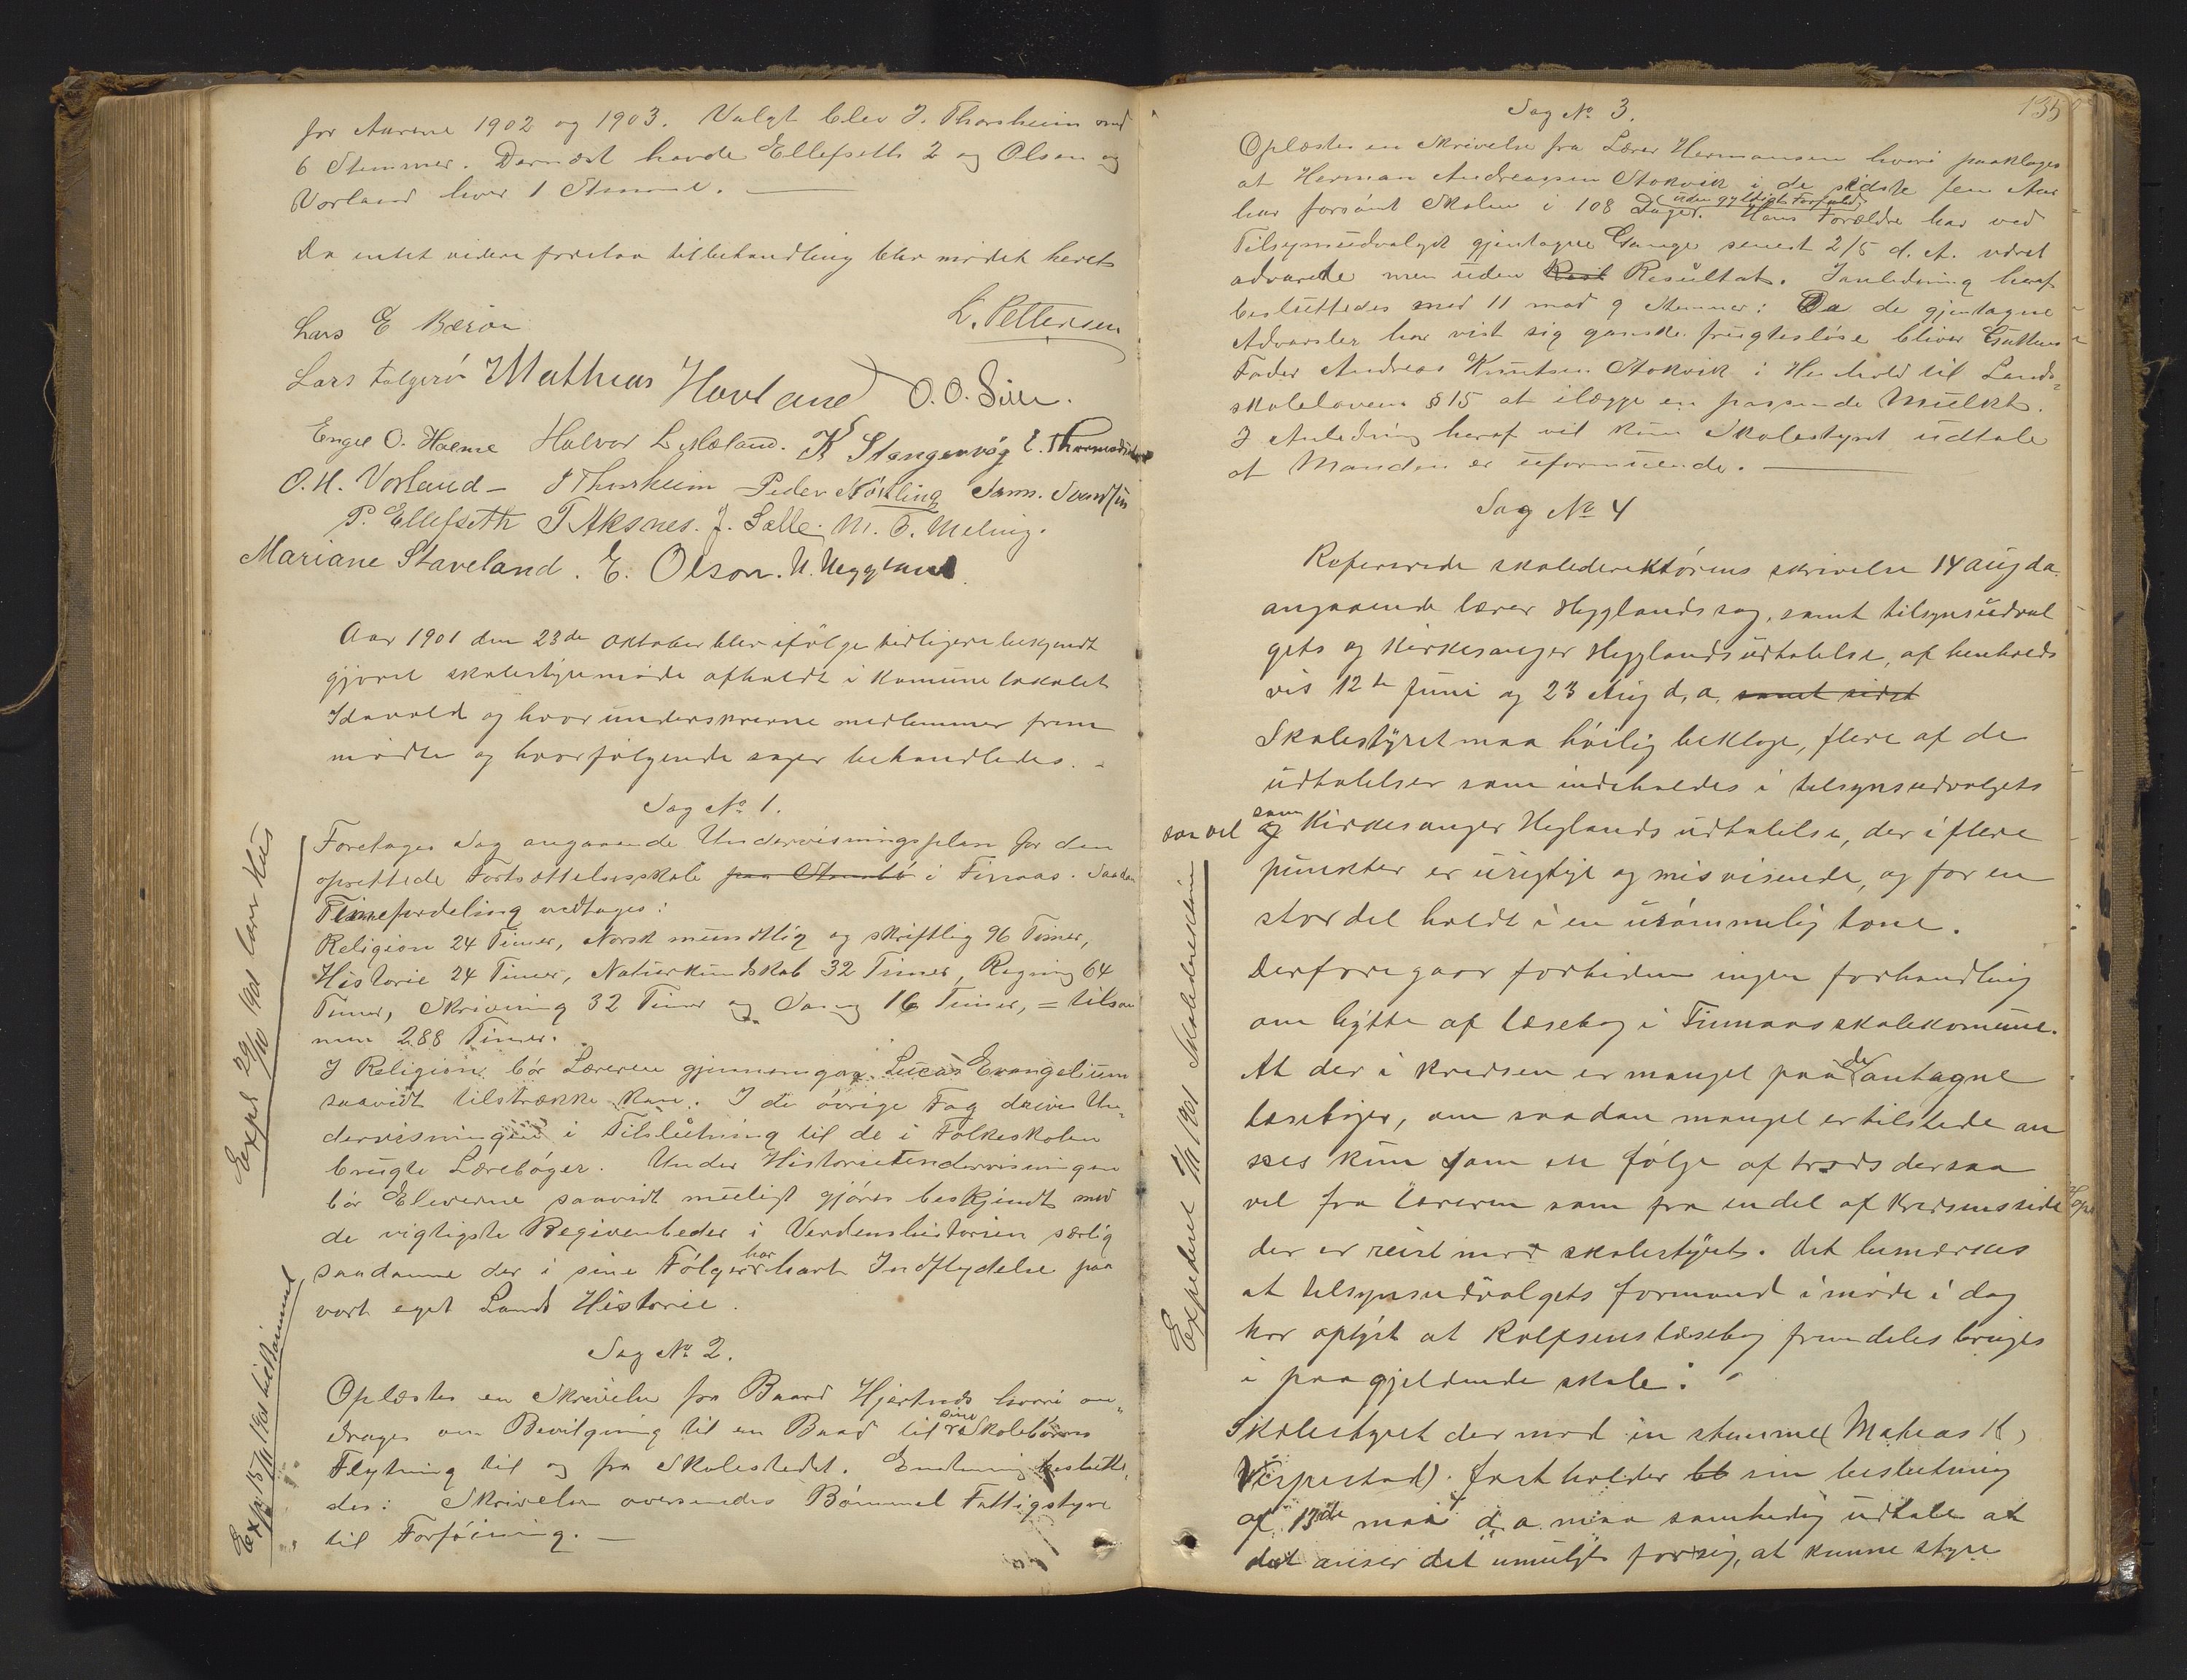 for Aarene 1902 og 1903. Valgt blev J. Thorsheim med
6 Stemmer. Dernæst havde Ellefseth 2 og Olsen og
Vorland hver 1 Stemme.
Da intet videre forelaa til behandling blev mødet hevet
L. Pettersen
Lars E Berøe
Lars Folgerø Mathias Hovland O. O. Sille.
Engel O. Holme Halvor L Mæland. K Stangervåg E. Thormodsæter
O. H. Vorland - J Thorsheim Peder Nörling Sam. Svendsen
P. Ellefseth T Aksnes. J. Sælle. M. O. Meling.
Mariane Staveland. E. Olson. N. Heggland.
Aar 1901 den 23de oktober blev ifölge tidligere bekjendt
gjørel skolestyremöde afholdt i Komune lokalet
Idavold og hvor underskrevne medlemmer frem
mødte og hvor følgende sager behandledes. -
Sag No 1.
Foretages Sag angaaende Undervisningsplan for den
oprettede Fortsættelsesskole i Finaas. Saadan
Timefordeling vedtages:
Religion 24 Timer, Norsk mundtlig og skriftlig 96 Timer,
Historie 24 Timer, Naturkundskab 32 Timer, Regning 64
Timer, Skrivning 32 Timer og Sang 16 Timer, = tilsam
men 288 Timer.
I Religion bör Læreren gjennemgaa Lucas Evangelium
saavidt tilstrække kan. I de övrige Fag drives Un„
dervisningen i Tilslutning til de i Folkeskolen
brugte Læreböger. Under Historieundervisningen
bör Eleverne saavidt muligt gjöres beskjendt med
de vigtigste Begivenheder i Verdenshistorien særlig
saadanne der i sine Fölger har havt Indflydelse paa
vort eget Lands Historie.
Sag No 2.
Oplæstes en Skrivelse fra Baard Hjertnes hvori an„
drages om Bevilgning til en Baad til sine Skolebörns
Flytning til og fra Skolestedet. Enstemmig beslutte„
des: Skrivelsen oversendes Bömmel Fattigstyre
til Forföining. -
Expd 29/10 1901 lærer Hus
Exp. 15/11 1901 til Bömmel
135
Sag No 3.
Oplæstes en Skrivelse fra Lærer Hermansen hvori paaklages
at Herman Andreassen Stokvik i de sidste fem Aar
har forsömt Skolen i 108 Dager (uden gyldigt Forfald). Hans Forældre har ved
Tilsynsudvalget gjentagne Gange senest 2/5 d. A. været
advarede men uden Resultat. I anledning heraf
besluttedes med 11 mod 9 Stemmer: Da de gjentagne
Advarsler har vist sig ganske frugtesløse bliver Guttens
Fader Andreas Knutsen Stokvik i Henhold til Lands„
skoleloven § 15 at ilægge en passende Mulkt.
I Anledning heraf vil kun Skolestyret udtale
at Manden er uformuende.
Sag No 4
Refererede skoledirektörens skrivelse 14 aug da.
angaaende lærer Hegglands sag, samt tilsynsudval
gets og Kirkesanger Hegglands udtalelse, af henholds
vis 12te Juni og 23 Aug d. a. samt sidst
Skolestyret maa höilig beklage, flere af de
udtalelser som indeholdes i tilsynsudvalgets
saavel som Kirkesanger Heglands udtalelse, der i flere
punkter er urigtige og misvisende, og for en
stor del holdt i en usömmelig tone.
Derfore gaar fortiden ingen forhandling
om bytte af læsebog i Finnaas skolekomune.
At der i kredsen er mangel paa de antagne
læsebøger, om saadan mangel er tilstede an
sees kun som en fölge af trods der saa
vel fra læreren som fra en del af Kredsens side
der er reist mod skolestyret. Det bemærkes
at tilsynsudvalgets formand i møde i dag
har oplyst at Rolfsens læsebog fremdeles bruges
i paagjeldende skole.
Skolestyret der mod en stemme (Matias H,
Verpestad). fastholder sin beslutning
af 13de mai d a maa samtidig udtale at
det anser det umuligt for sig, at kunne styre
Expederet 2/11 1901 Skoledirektören